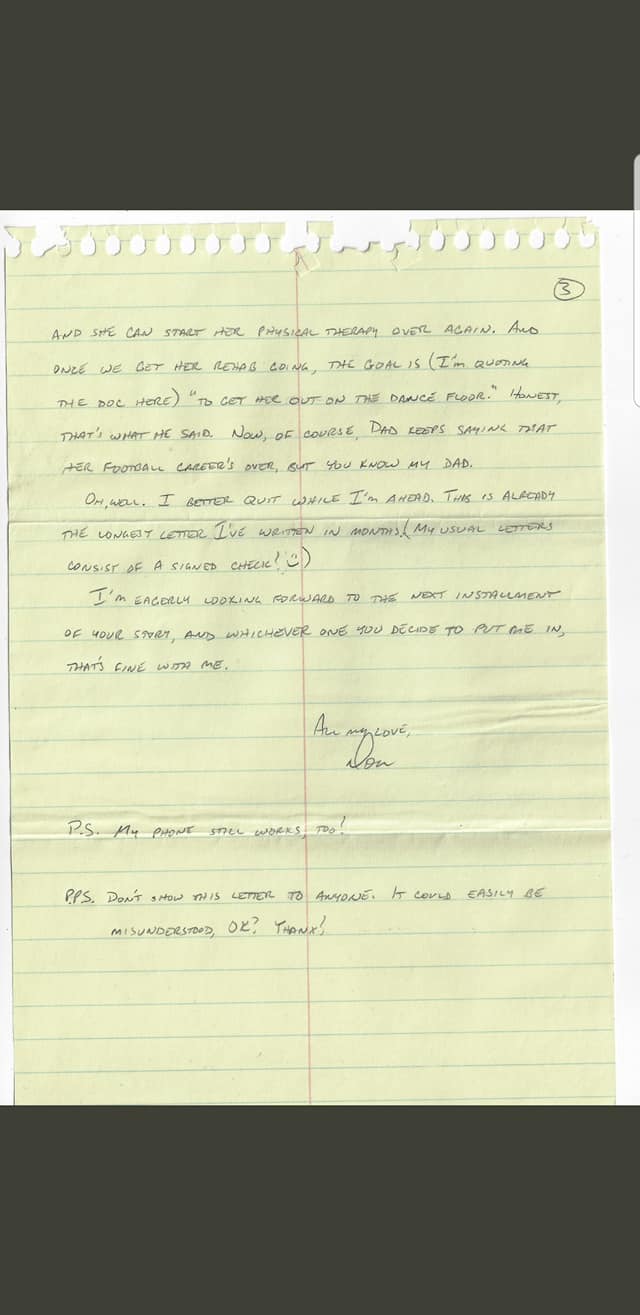 3
AND SHE CAN START HER PHYSICAL THERAPY OVER AGAIN. AND
ONCE WE GET HER REHAB GOING, THE GOAL IS (I'M QUOTING
THE DOC HERE) "TO GET HER OUT ON THE DANCE FLOOR." HONEST,
THAT'S WHAT HE SAID. NOW, OF COURSE, DAD KEEPS SAYING THAT
HER FOOTBALL CAREER'S OVER, BUT YOU KNOW MY DAD.
OH, WELL. I BETTER QUIT WHILE I'M AHEAD. THIS IS ALREADY
THE LONGEST LETTER I'VE WRITTEN IN MONTHS! (MY USUAL LETTERS
CONSIST OF A SIGNED CHECK! ☺)
I'M EAGERLY LOOKING FORWARD TO THE NEXT INSTALLMENT
OF YOUR STORY, AND WHICHEVER ONE YOU DECIDE TO PUT ME IN,
THAT'S FINE WITH ME.
ALL MY LOVE,
P.S. MY PHONE STILL WORKS, TOO!
P.P.S. DON'T SHOW THIS LETTER TO ANYONE. IT COULD EASILY BE
MISUNDERSTOOD, OK? THANX!